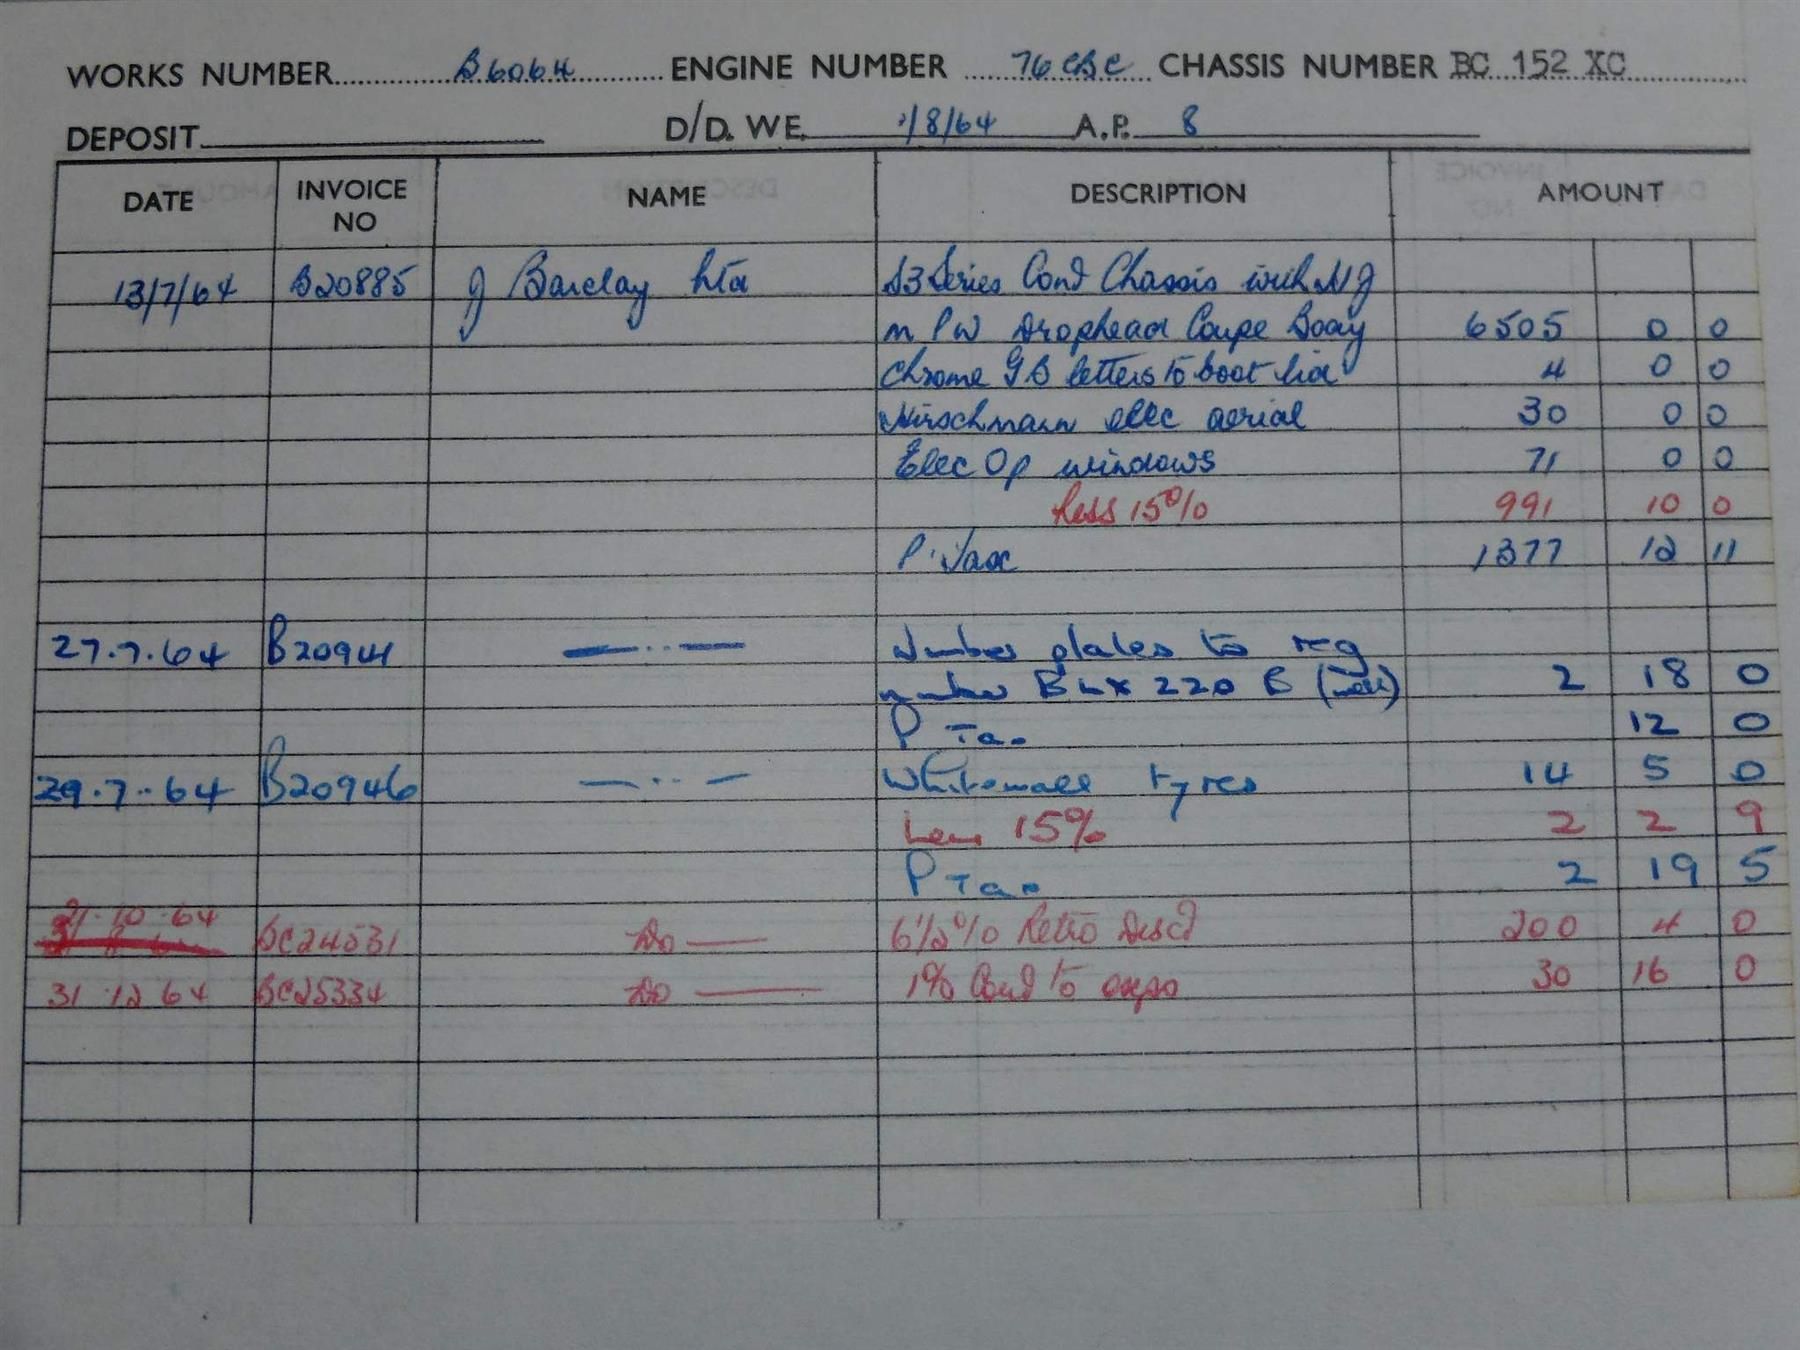 WORKS NUMBER B6064 ENGINE NUMBER 76 CBC CHASSIS NUMBER BC 152 XC
DEPOSIT D/D. WE 1/8/64 A.P. 8
DATE INVOICE NO NAME DESCRIPTION AMOUNT
13/7/64 B20885 J Barclay Ltd S3 Series Cont Chassis with HJ
M P W Drophead Coupe Body 6505 0 0
Chrome GB letters to boot lid 4 0 0
Hirschmann elec aerial 30 0 0
Elec Op windows 71 0 0
Less 15% 991 10 0
P. Tax 1377 12 11
27.7.64 B20941 — .. — Number plates to reg
number BLX 220 B 2 18 0
P Tax 12 0
29.7.64 B20946 — .. — Whitewall tyres 14 5 0
Less 15% 2 2 9
P Tax 2 19 5
31.10.64 BC24531 Do — 6 1/2 % Retro Disct 200 4 0
31 12 64 BC25334 Do — 1% Cont to exps 30 16 0